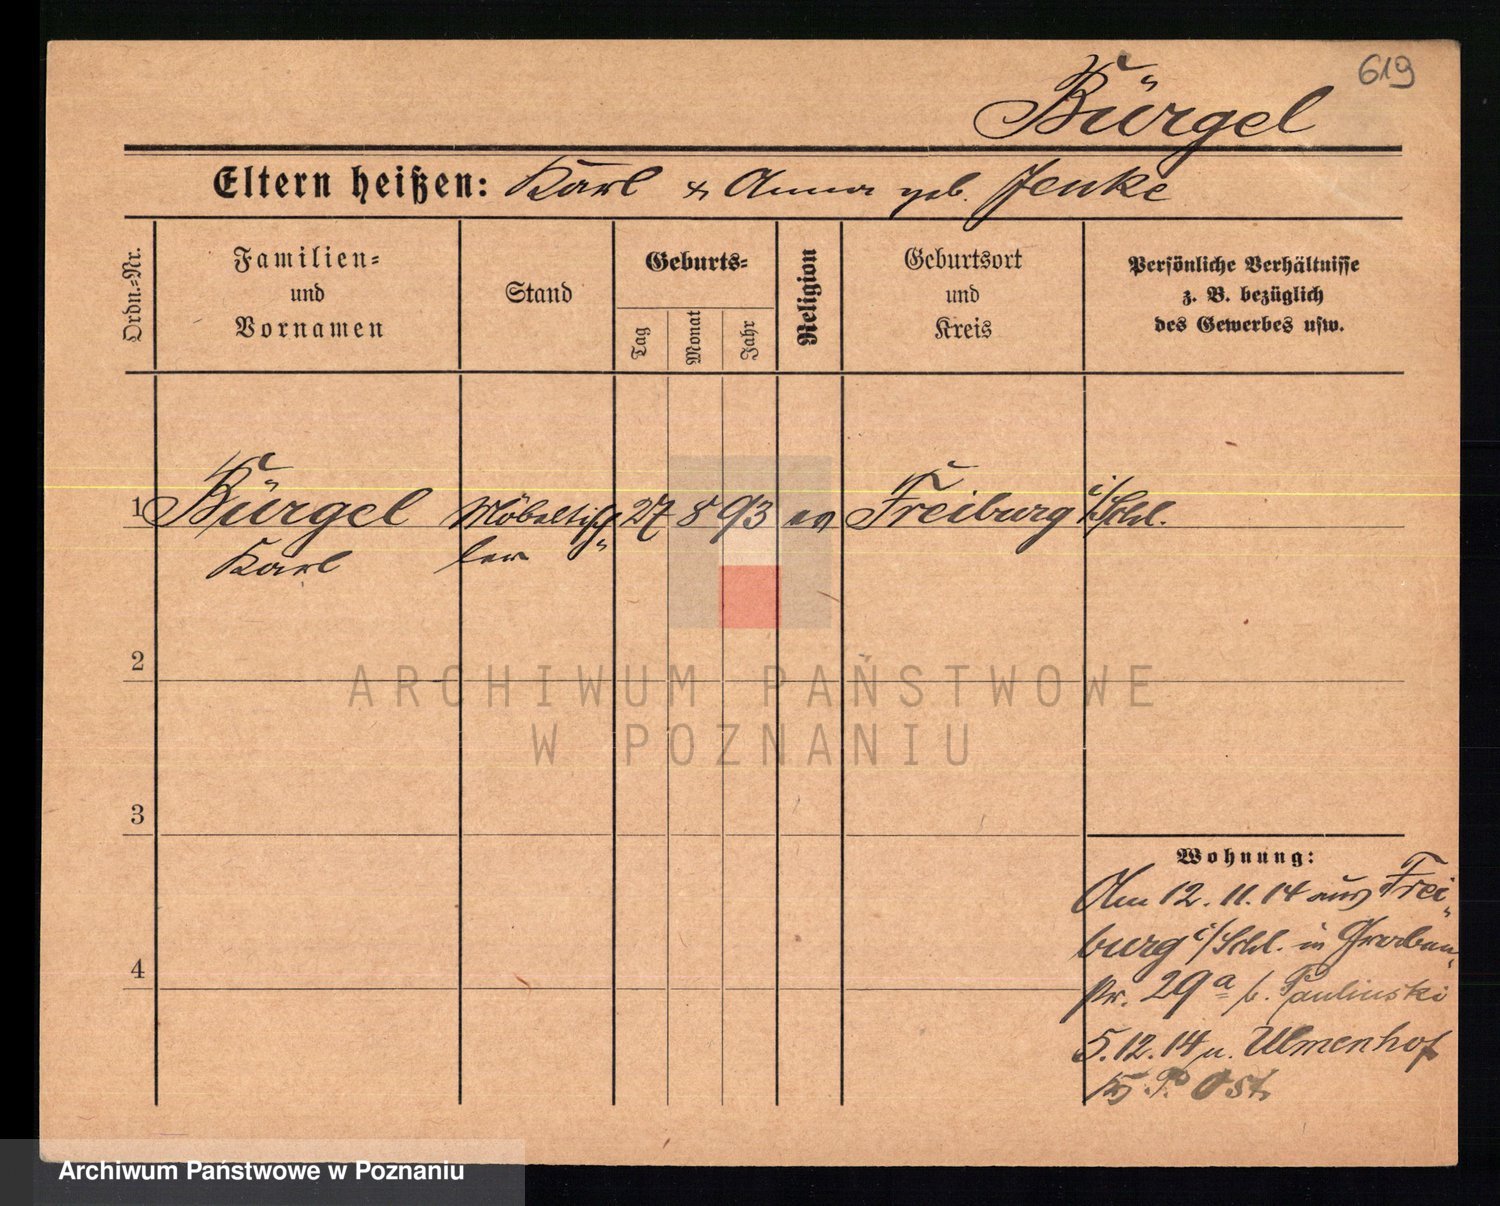 619
Bürgel
Eltern heißen: Karl & Anna geb. Jenke
Ordn.=Nr.
Familien=
und
Vornamen
Stand
Geburts=
Tag
Monat
Jahr
Religion
Geburtsort
und
Kreis
Persönliche Verhältnisse
z. B. bezüglich
des Gewerbes usw.
1 Bürgel Möbeltisch= 27 8 93 ev Freiburg i/Schl.
Karl ler
2
3
4
ARCHIWUM PAŃSTWOWE
W POZNANIU
Wohnung:
Am 12. 11. 14 aus Frei=
burg i/Schl. in Graben=
str. 29a b. Paulinski
5.12.14 n. Ulmenhof
P. Ost
Archiwum Państwowe w Poznaniu